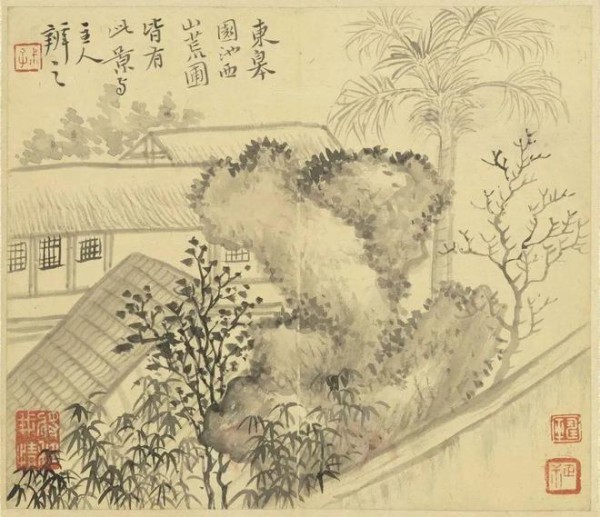 東皋
園池西
山荒圃
皆有
此景与
主人
辨之